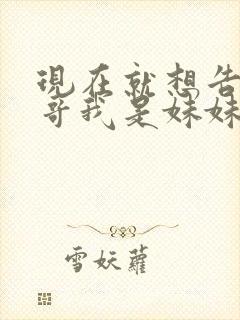 現在就想告
哥我是妹妹
雪妖蘿